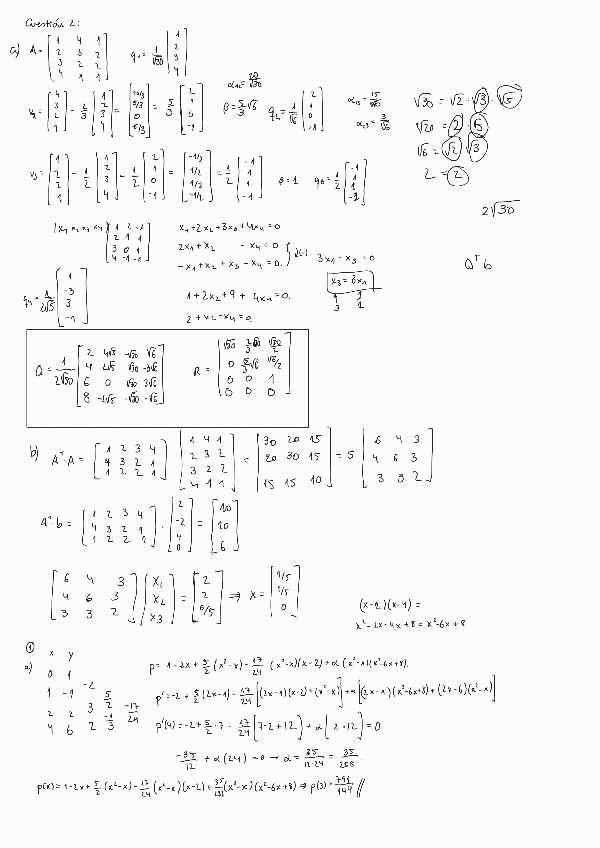 Cuestión 2:
a) A = [1 4 1; 2 3 2; 3 2 2; 4 1 1] q1 = 1/√30 [1; 2; 3; 4]
α12 = 20/√30
v2 = [4; 3; 2; 1] - 2/3 [1; 2; 3; 4] = [10/3; 5/3; 0; -5/3] = 5/3 [2; 1; 0; -1] β = 5/3 √6 q2 = 1/√6 [2; 1; 0; -1] α13 = 15/√30 α23 = 3/√6
√30 = √2 · √3 · √5
√20 = 2 · √5
√6 = √2 √3
2 = 2
2√30
v3 = [1; 2; 2; 1] - 1/2 [1; 2; 3; 4] - 1/2 [2; 1; 0; -1] = [-1/2; 1/2; 1/2; -1/2] = 1/2 [-1; 1; 1; -1] β = 1 q3 = 1/2 [-1; 1; 1; -1]
[x1 x2 x3 x4] [1 2 -1; 2 1 1; 3 0 1; 4 -1 -1]
x1 + 2x2 + 3x3 + 4x4 = 0
2x1 + x2 - x4 = 0
-x1 + x2 + x3 - x4 = 0
3x1 - x3 = 0
x3 = 3x1
Qᵀb
q4 = 1/2√5 [1; -3; 3; -1]
1 + 2x2 + 9 + 4x4 = 0.
2 + x2 - x4 = 0.
Q = 1/2√30 [2 4√5 -√30 √6; 4 2√5 √30 -3√6; 6 0 √30 3√6; 8 -2√5 -√30 -√6]
R = [√30 2/3√30 √30/2; 0 5/3√6 √6/2; 0 0 1; 0 0 0]
b) Aᵀ·A = [1 2 3 4; 4 3 2 1; 1 2 2 1] [1 4 1; 2 3 2; 3 2 2; 4 1 1] = [30 20 15; 20 30 15; 15 15 10] = 5 [6 4 3; 4 6 3; 3 3 2]
Aᵀ·b = [1 2 3 4; 4 3 2 1; 1 2 2 1] · [2; -2; 4; 0] = [10; 10; 6]
[6 4 3; 4 6 3; 3 3 2] [x1; x2; x3] = [2; 2; 6/5] ⇒ x = [1/5; 1/5; 0]
(x-2)(x-4) =
x²-2x-4x+8 = x²-6x+8
①
a) x y
0 1
1 -1 -2
2 2 3 5/2
4 6 2 -1/3 -17/24
p = 1-2x + 5/2 (x²-x) - 17/24 (x²-x)(x-2) + α(x²-x)(x²-6x+8)
p' = -2 + 5/2 (2x-1) - 17/24 [(2x-1)(x-2) + (x²-x)] + α[(2x-1)(x²-6x+8) + (2x-6)(x²-x)]
p'(4) = -2 + 5/2 · 7 - 17/24 [7·2+12] + α[2·12] = 0
-35/12 + α(24) = 0 → α = 35/12·24 = 35/288
p(x) = 1-2x + 5/2 (x²-x) - 17/24 (x²-x)(x-2) + (x²-x)(x²-6x+8) ⇒ p(3) =